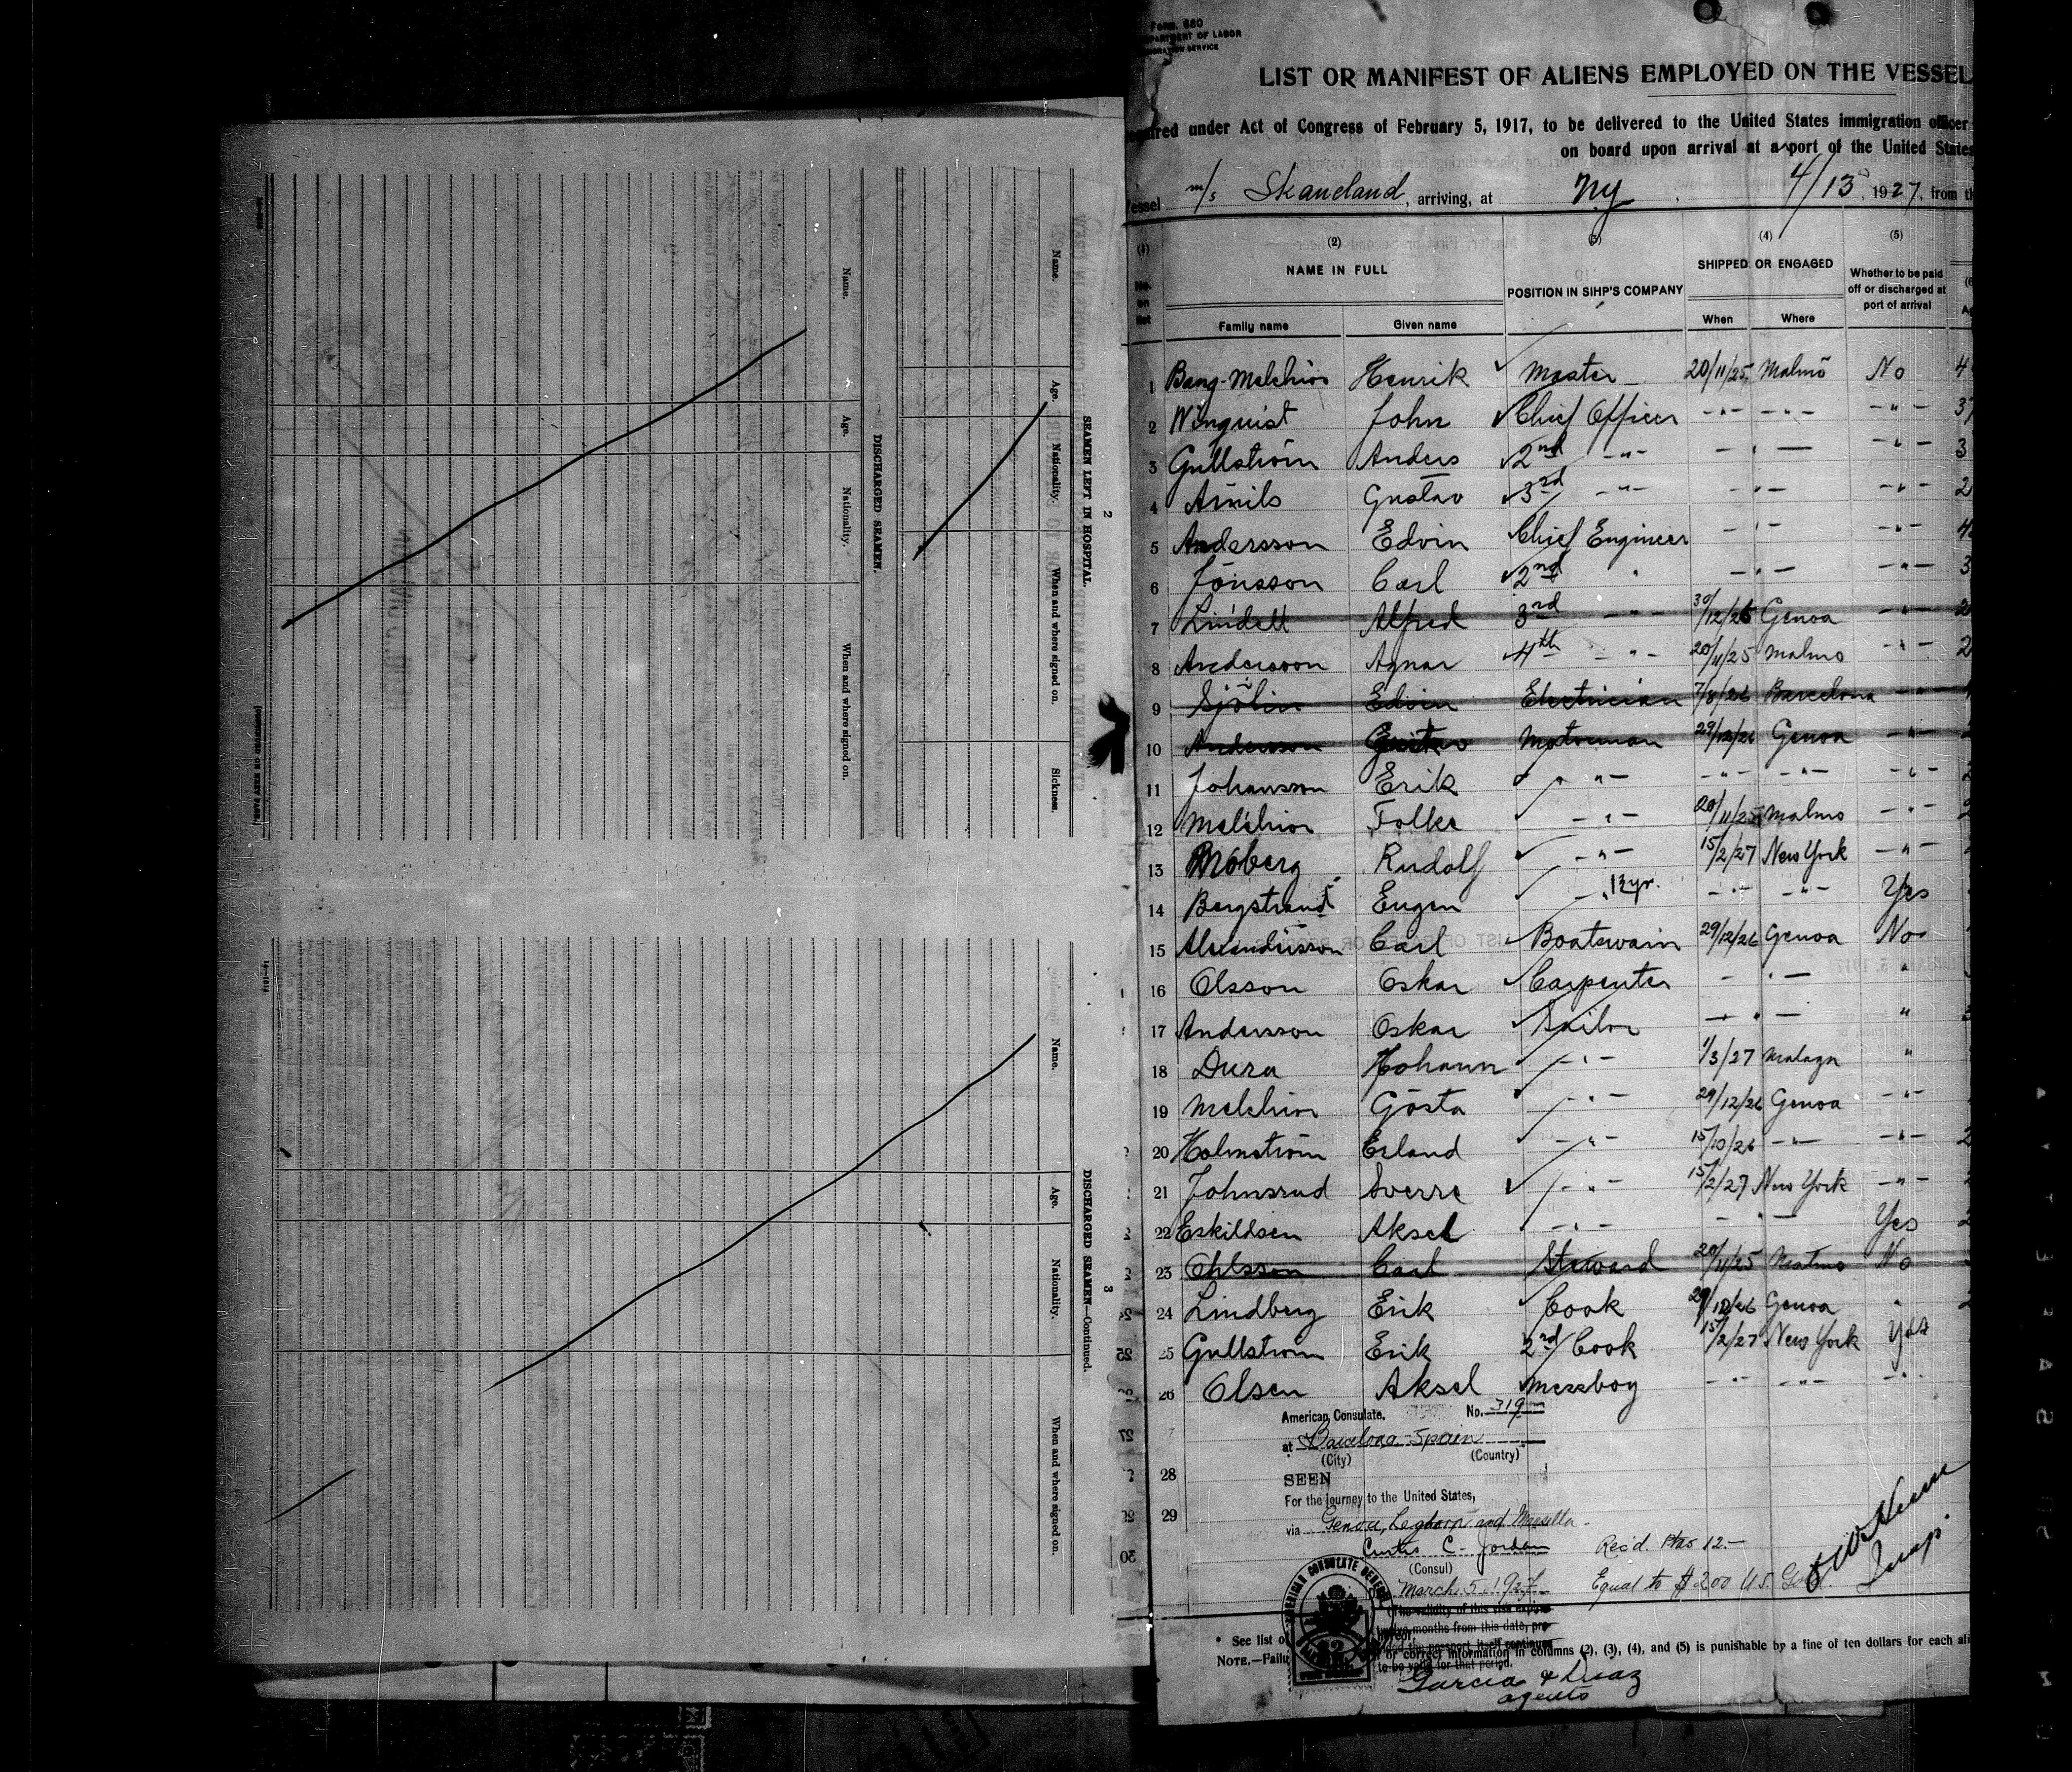 2
SEAMEN LEFT IN HOSPITAL.
Name. Age. Nationality. When and where signed on. Sickness.
DISCHARGED SEAMEN.
Name. Age. Nationality. When and where signed on.
3
DISCHARGED SEAMEN—Continued.
Name. Age. Nationality. When and where signed on.
Form 680
DEPARTMENT OF LABOR
IMMIGRATION SERVICE
LIST OR MANIFEST OF ALIENS EMPLOYED ON THE VESSEL
required under Act of Congress of February 5, 1917, to be delivered to the United States immigration officer
on board upon arrival at a port of the United States
Vessel m/s Skaneland, arriving, at NY 4/13, 1927, from th
(1) (2) (3) (4) (5)
No. on list NAME IN FULL POSITION IN SIHP'S COMPANY SHIPPED OR ENGAGED Whether to be paid off or discharged at port of arrival
Family name Given name When Where
1 Bang-Melchior Henrik Master 20/11/25 Malmö No 4
2 Winquist John Chief Officer -"- -"- -"- 37
3 Gullström Anders 2nd -"- - " - -"- 3
4 Gustav 3rd -"- - " - -"- 2
5 Andersson Edvin Chief Engineer - " - -"- 4
6 Jönsson Carl 2nd " - " - -"- 3
7 Lindell Alfred 3rd -"- 30/12/26 Genoa -"- 2
8 Andersson Agnar 4th -"- 20/11/25 Malmo -"- 2
9 Sjölin Edvin Electrician 7/8/26 Barcelona -"-
10 Andersson Gustav Motorman 29/12/26 Genoa -"-
11 Johansson Erik -"- -"- -"- -"- 2
12 Melchior Folke -"- 20/11/25 Malmo -"- 2
13 Moberg Rudolf -"- 15/2/27 New York -"-
14 Bergstrand Eugen -"- -"- -"- Yes
15 Carl Boatswain 29/12/26 Genoa No
16 Olsson Oskar Carpenter - " - "
17 Andersson Oskar Sailor - " - " 3
18 Dura -"- 1/3/27 Malaga "
19 Melchior Gösta -"- 29/12/26 Genoa -"-
20 Holmström Erland -"- 15/10/26 -"- -"- 2
21 Johnsrud Sverre -"- 15/2/27 New York -"- 2
22 Eskildsen Aksel -"- - " - Yes 2
23 Ohlsson Carl Steward 20/11/25 Malmo No
24 Lindberg Erik Cook 29/12/26 Genoa " 2
25 Gullstrom Erik 2nd Cook 15/2/27 New York Yes
26 Olsen Aksel Messboy -"- -"- -"-
American Consulate. No. 319
at Barcelona-Spain
(City) (Country)
28
SEEN
For the journey to the United States,
29
via Genoa, Leghorn and Marsella
Curtis C. Jordan Rec'd Ptas 12.-
(Consul)
March 5-1927 Equal to $2.00 U.S. Gold.
Insp.
(The validity of this visa expires
twelve months from this date, pro-
the passport itself continues
to be valid for that period.
AMERICAN CONSULATE GENERAL
* See list o
NOTE.—Failu or correct information in columns (2), (3), (4), and (5) is punishable by a fine of ten dollars for each ali
Garcia & Diaz
agents